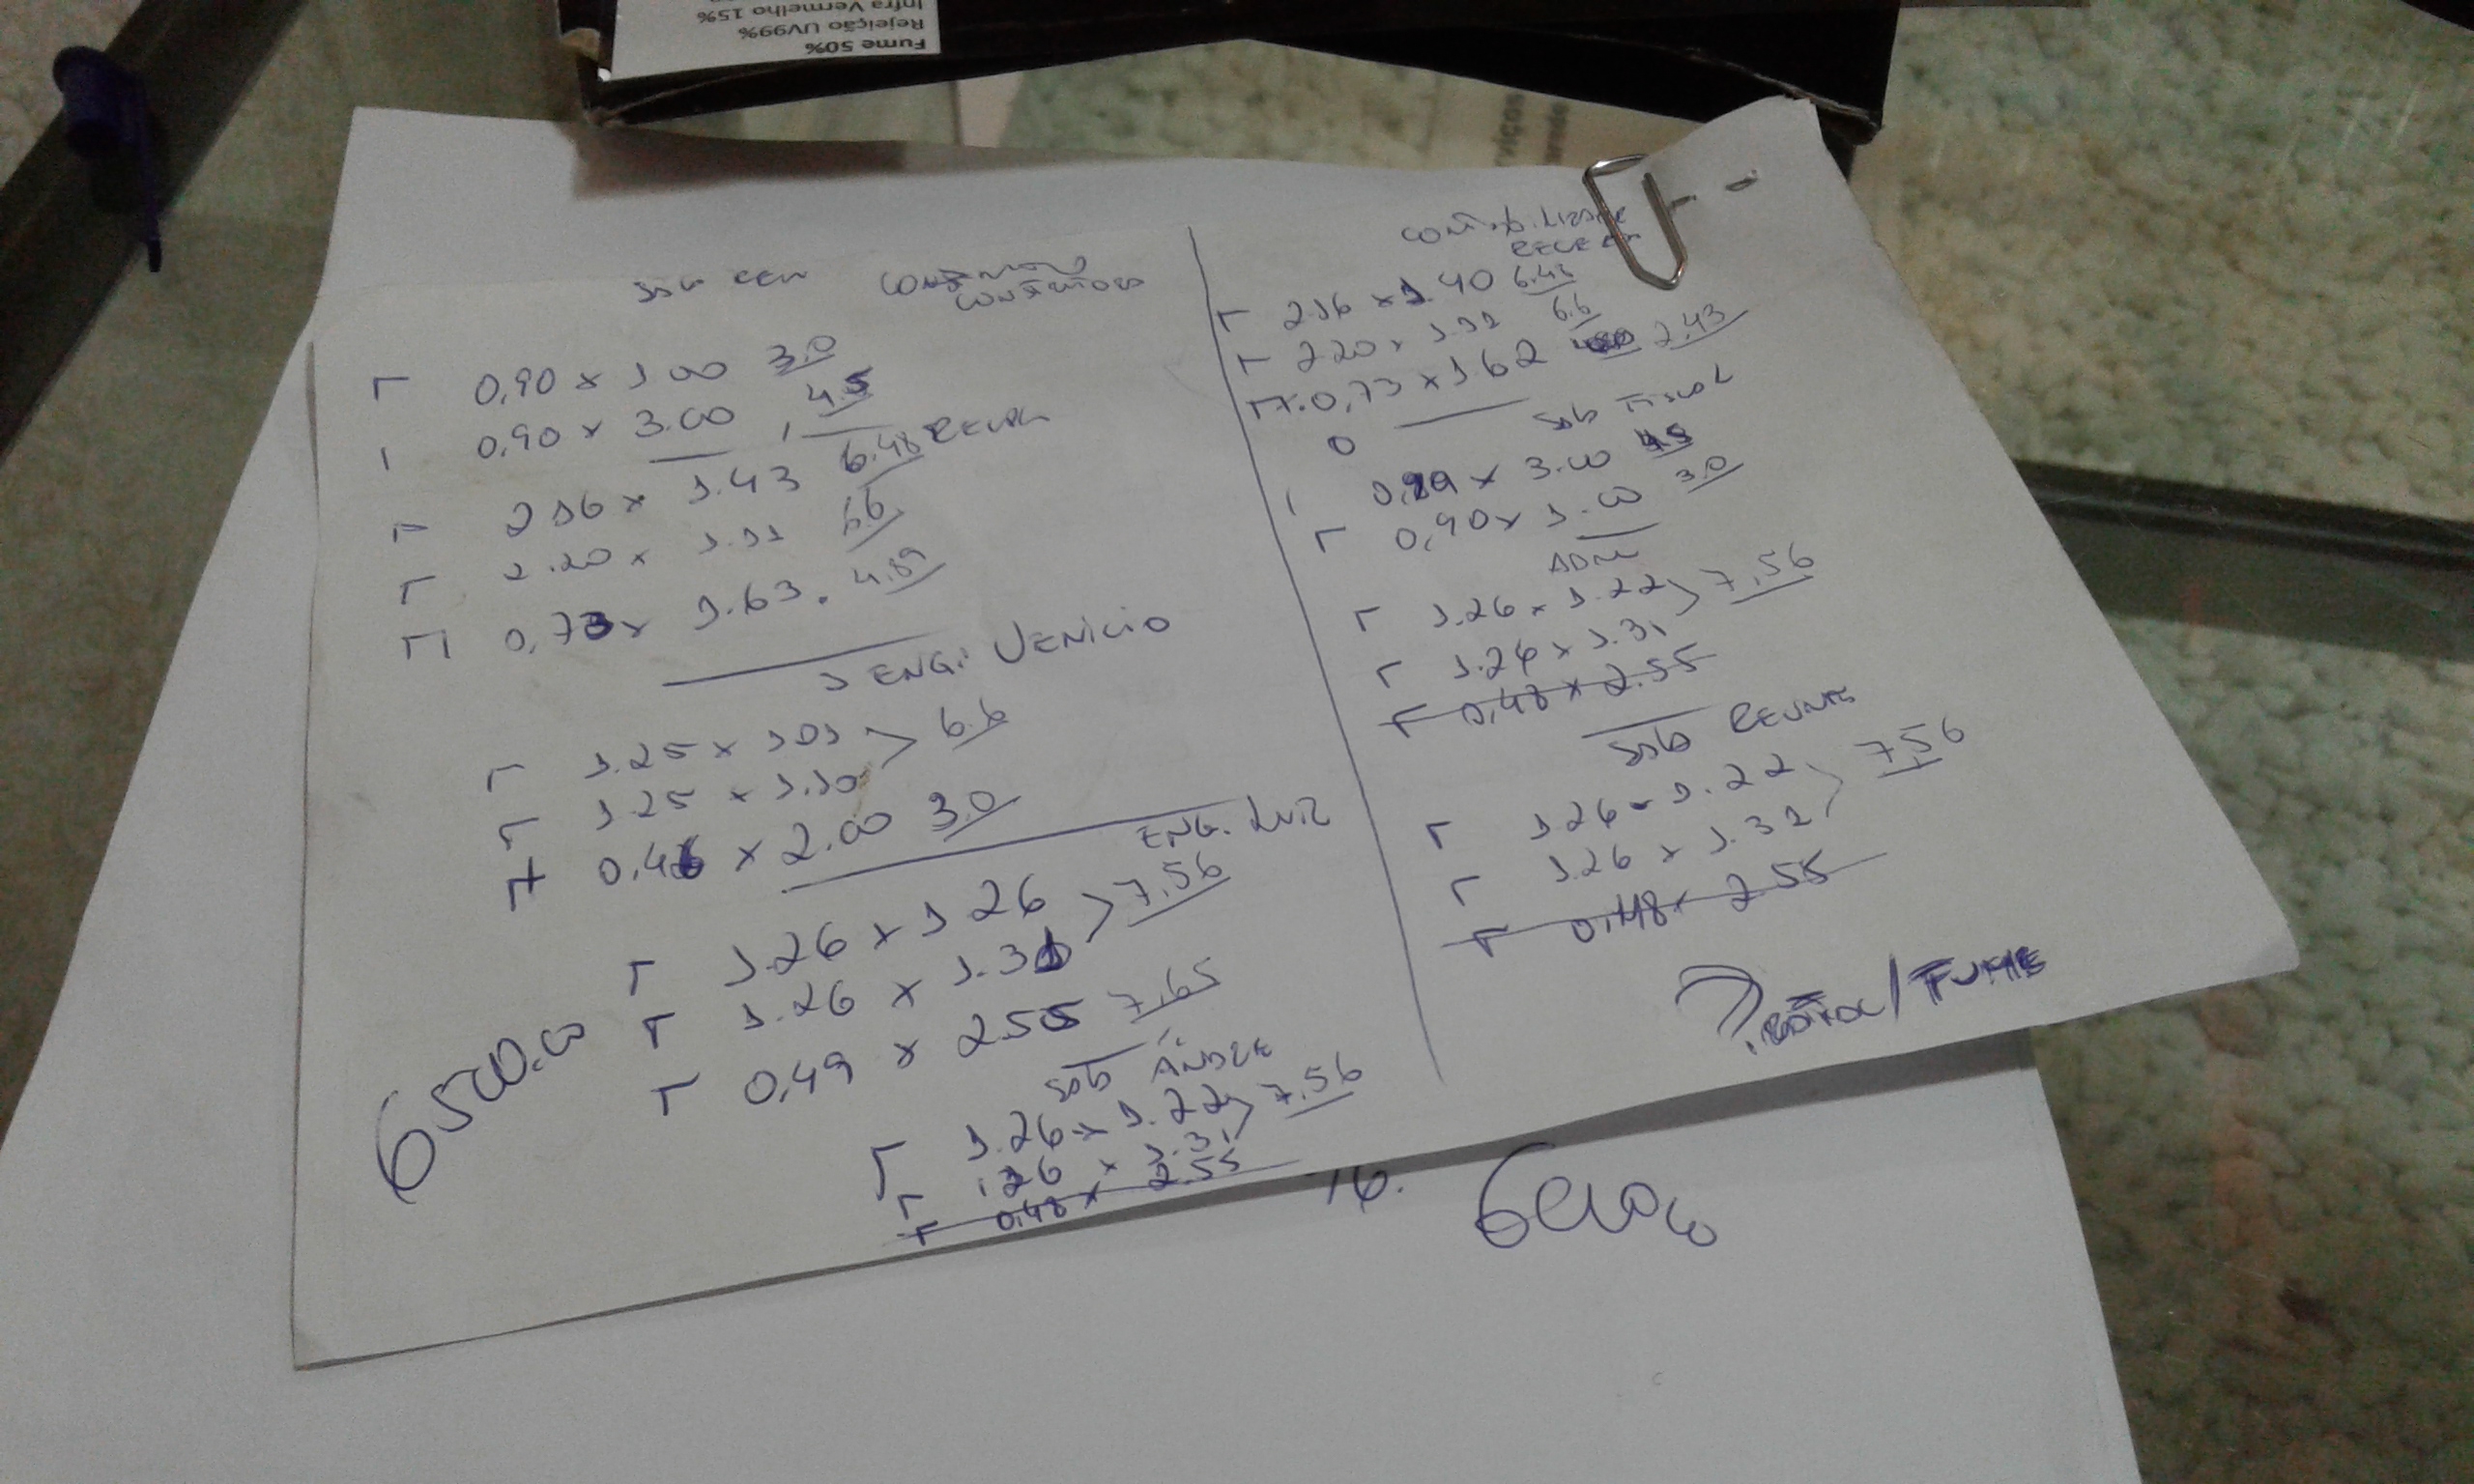 Fume 50%
Rejeição UV99%
Infra Vermelho 15%
erviços
0,90 x 1.00 3.0
0,90 x 3.00 4.5
2.16 x 1.43 6.48
2.20 x 1.11 6.6
0,73 x 1.63. 4.89
ENG: VENICIO
1.25 x 1.01 > 6.6
1.25 x 1.10
0.46 x 2.00 3.0
ENG. LUIZ
1.26 x 1.26 > 7.56
1.26 x 1.31
0,49 x 2.55 7.65
6500.00
SALA ANDRE
1.26 x 1.22 > 7.56
1.26 x 1.31
0,48 x 2.55
2.16 x 1.40 6.48
2.20 x 1.11 6.6
0,73 x 1.62 2.43
SALA FISCAL
3.00 4.5
0,90 x 1.00 3.0
ADM
1.26 x 1.22 > 7.56
1.26 x 1.31
0,48 x 2.55
SALA REUNIÃO
1.26 x 1.22 > 7.56
1.26 x 1.31
0,48 x 2.55
/ FUME